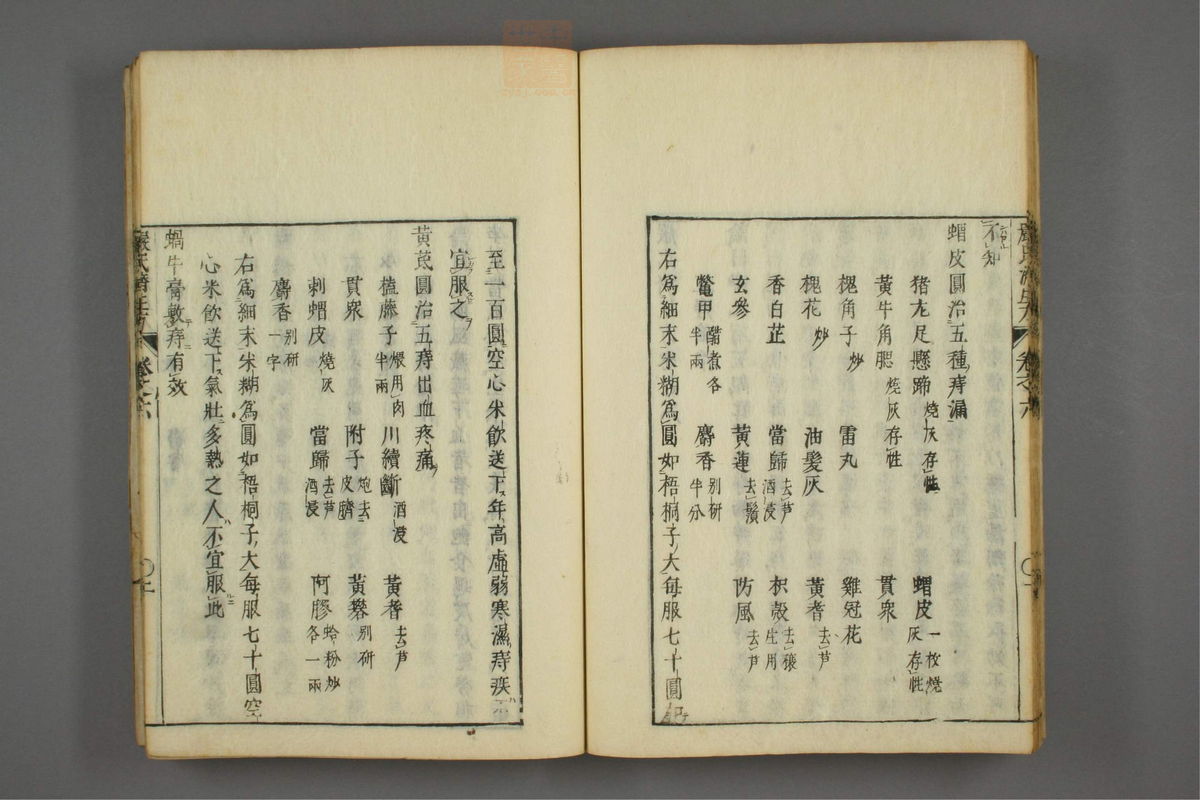 不知
蝟皮圓治五種痔漏
猪左足懸蹄燒灰存性 蝟皮一枚燒灰存性
黃牛角腮燒灰存性 貫衆
槐角子炒 雷丸 雞冠花
槐花炒 油髮灰 黃耆去芦
香白芷 當歸去芦酒浸 枳殼去穰生用
玄參 黃連去鬚 防風去芦
鼈甲醋煮各半兩 麝香别研半分
右爲細末米糊爲圓如梧桐子大每服七十圓
至一百圓空心米飲送下年高虛弱寒濕痔疾
宜服之
黃芪圓治五痔出血疼痛
榼藤子煨用肉半兩 川續斷酒浸 黃耆去芦
貫衆 附子炮去皮臍 黃礬别研
刺蝟皮燒灰 當歸去芦酒浸 阿膠蛤粉炒各一兩
麝香别研一字
右爲細末米糊爲圓如梧桐子大每服七十圓空
心米飲送下氣壯多熱之人不宜服此
蝸牛膏敷痔有效
卷之六